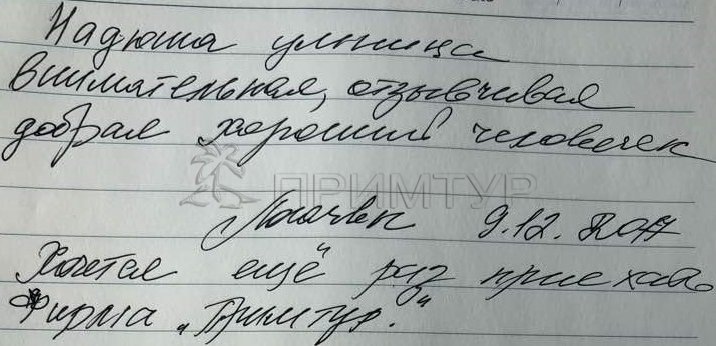 Надюша умница
внимательная, отзывчивая
добрая хороший человечек
ПРИМТУР
9.12.2017
Хочется ещё раз приехать
Фирма „Примтур."